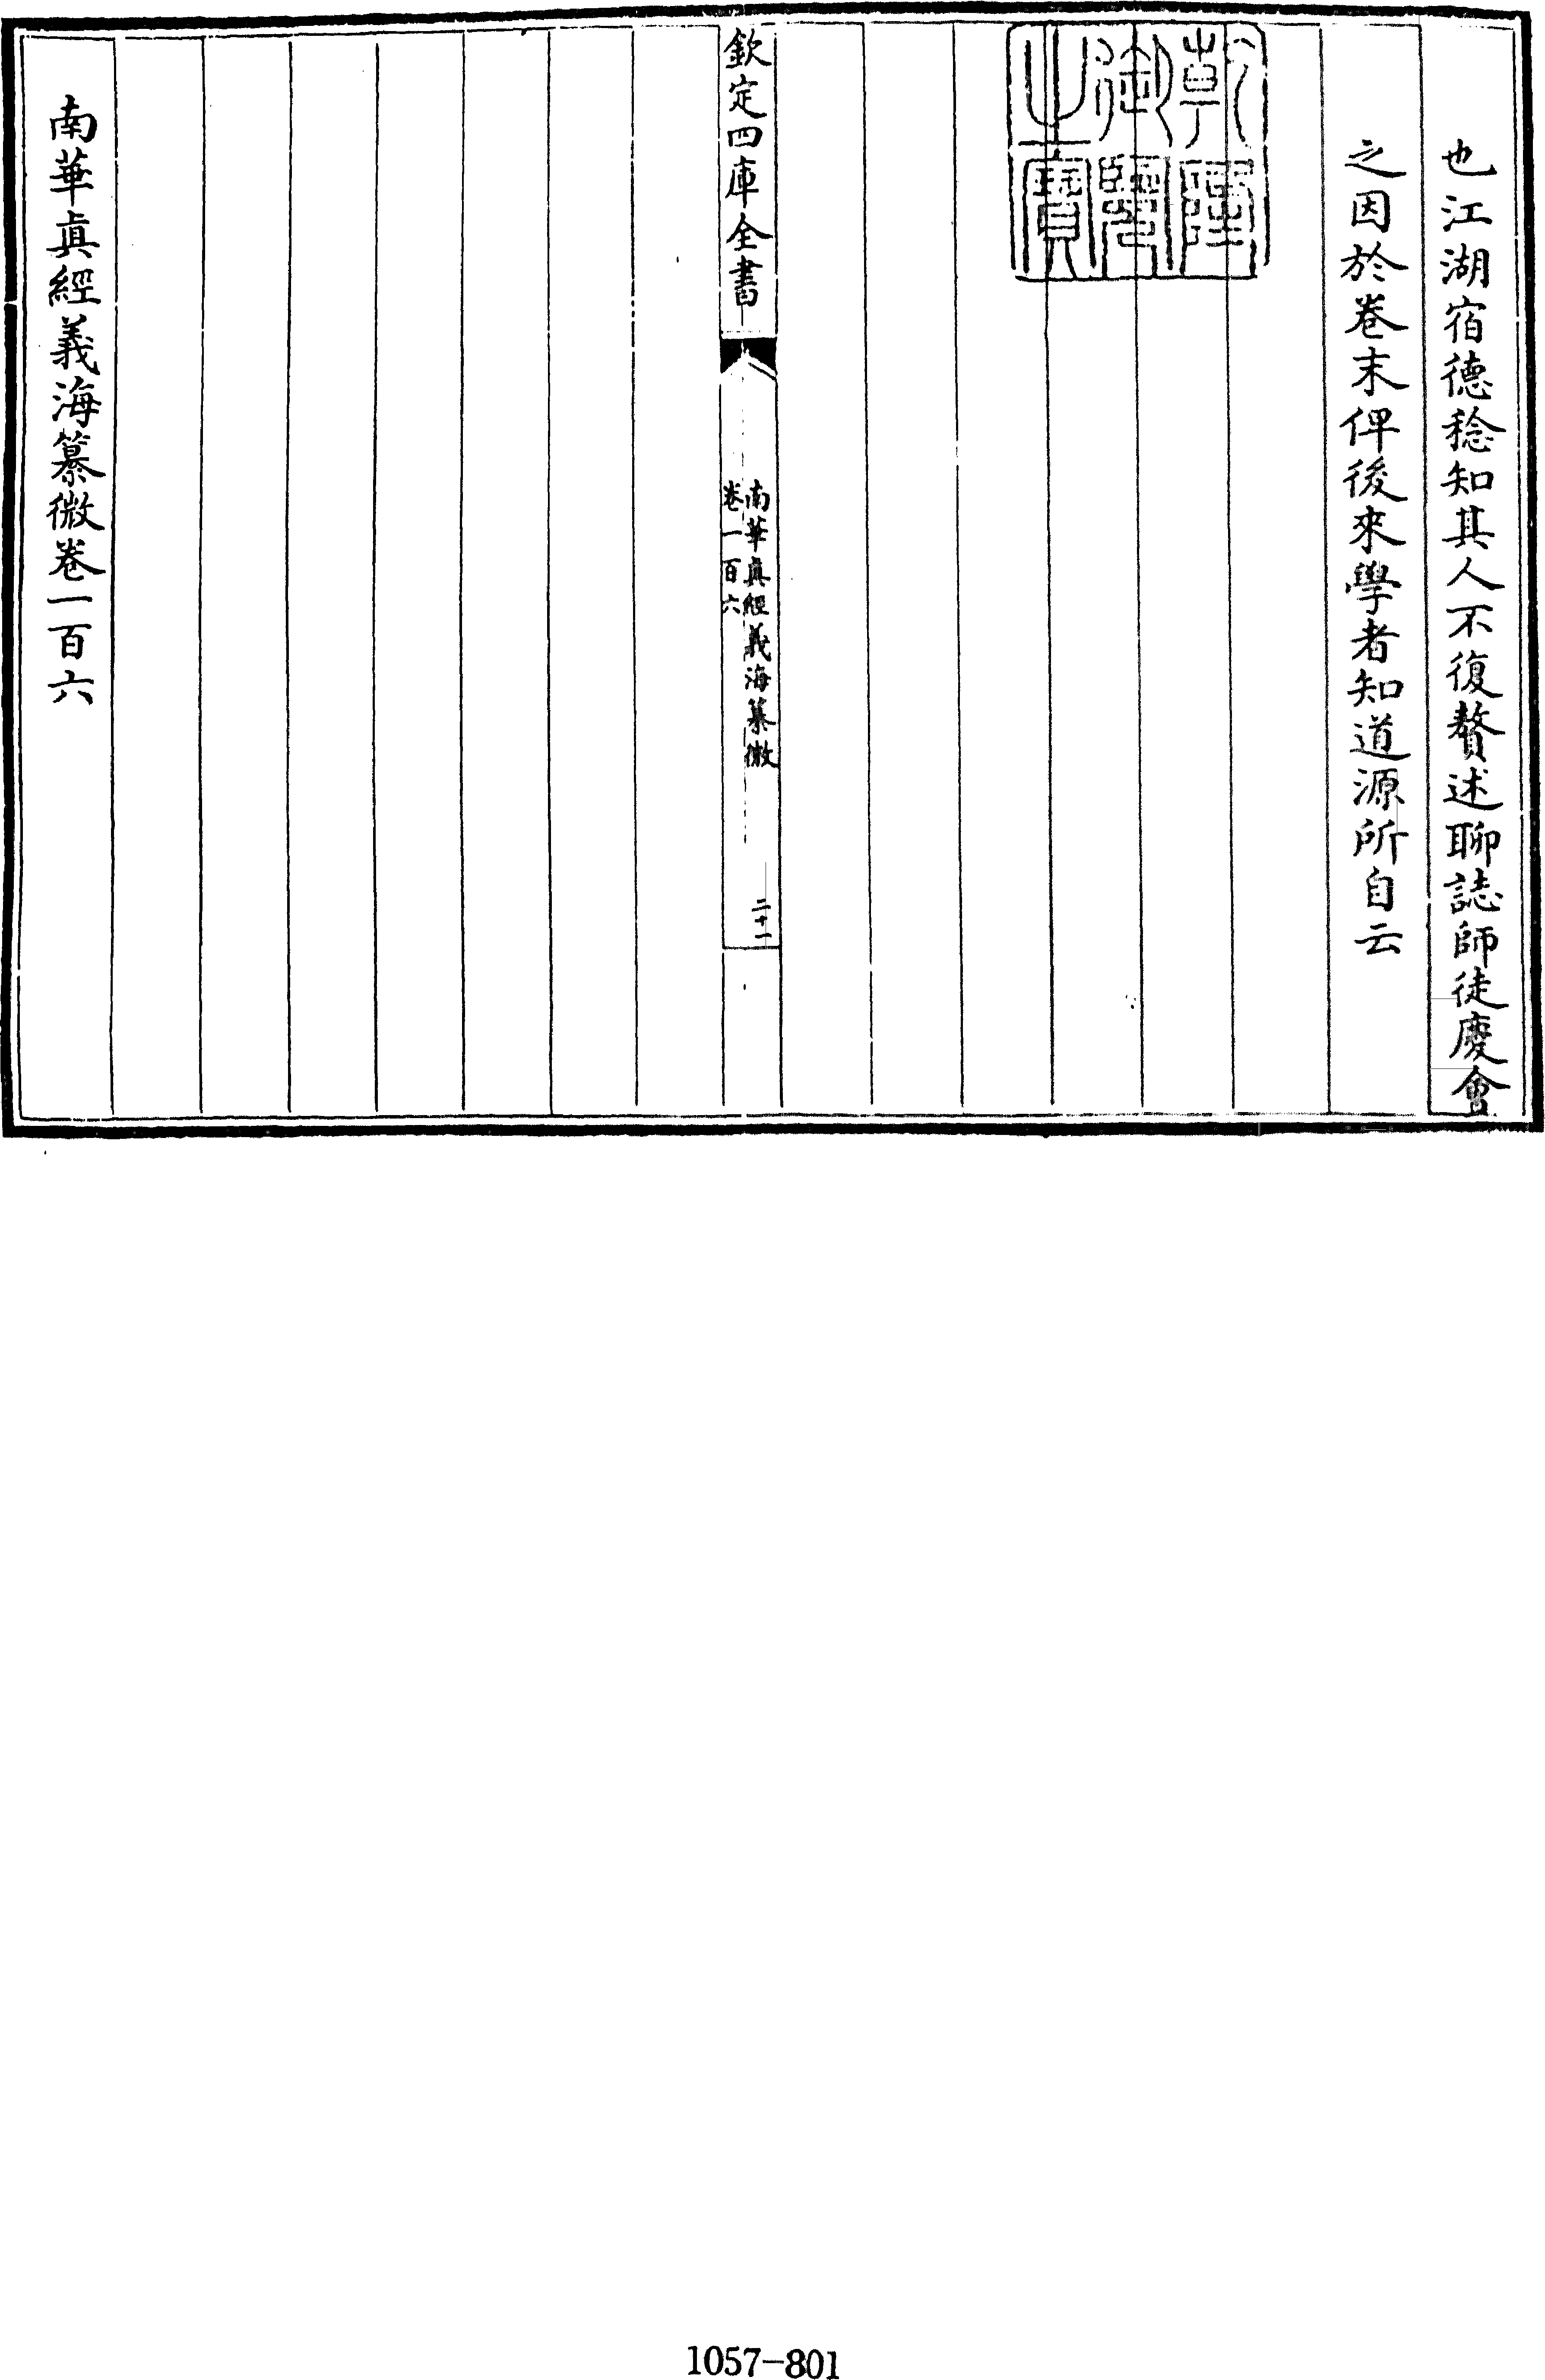 也江湖宿德稔知其人不復贅述聊誌師徒慶會
之因於卷末俾後來學者知道源所自云
乾隆
御覽
之寶
欽定四庫全書
南華真經義海纂微
卷一百六
二十一
南華真經義海纂微卷一百六
1057-801